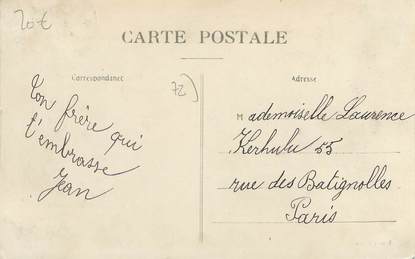 20€
CARTE POSTALE
Correspondance
72
Adresse
Ton frère qui
t'embrasse
Jean
Mademoiselle Laurence
Kerhulu 55
rue des Batignolles
Paris